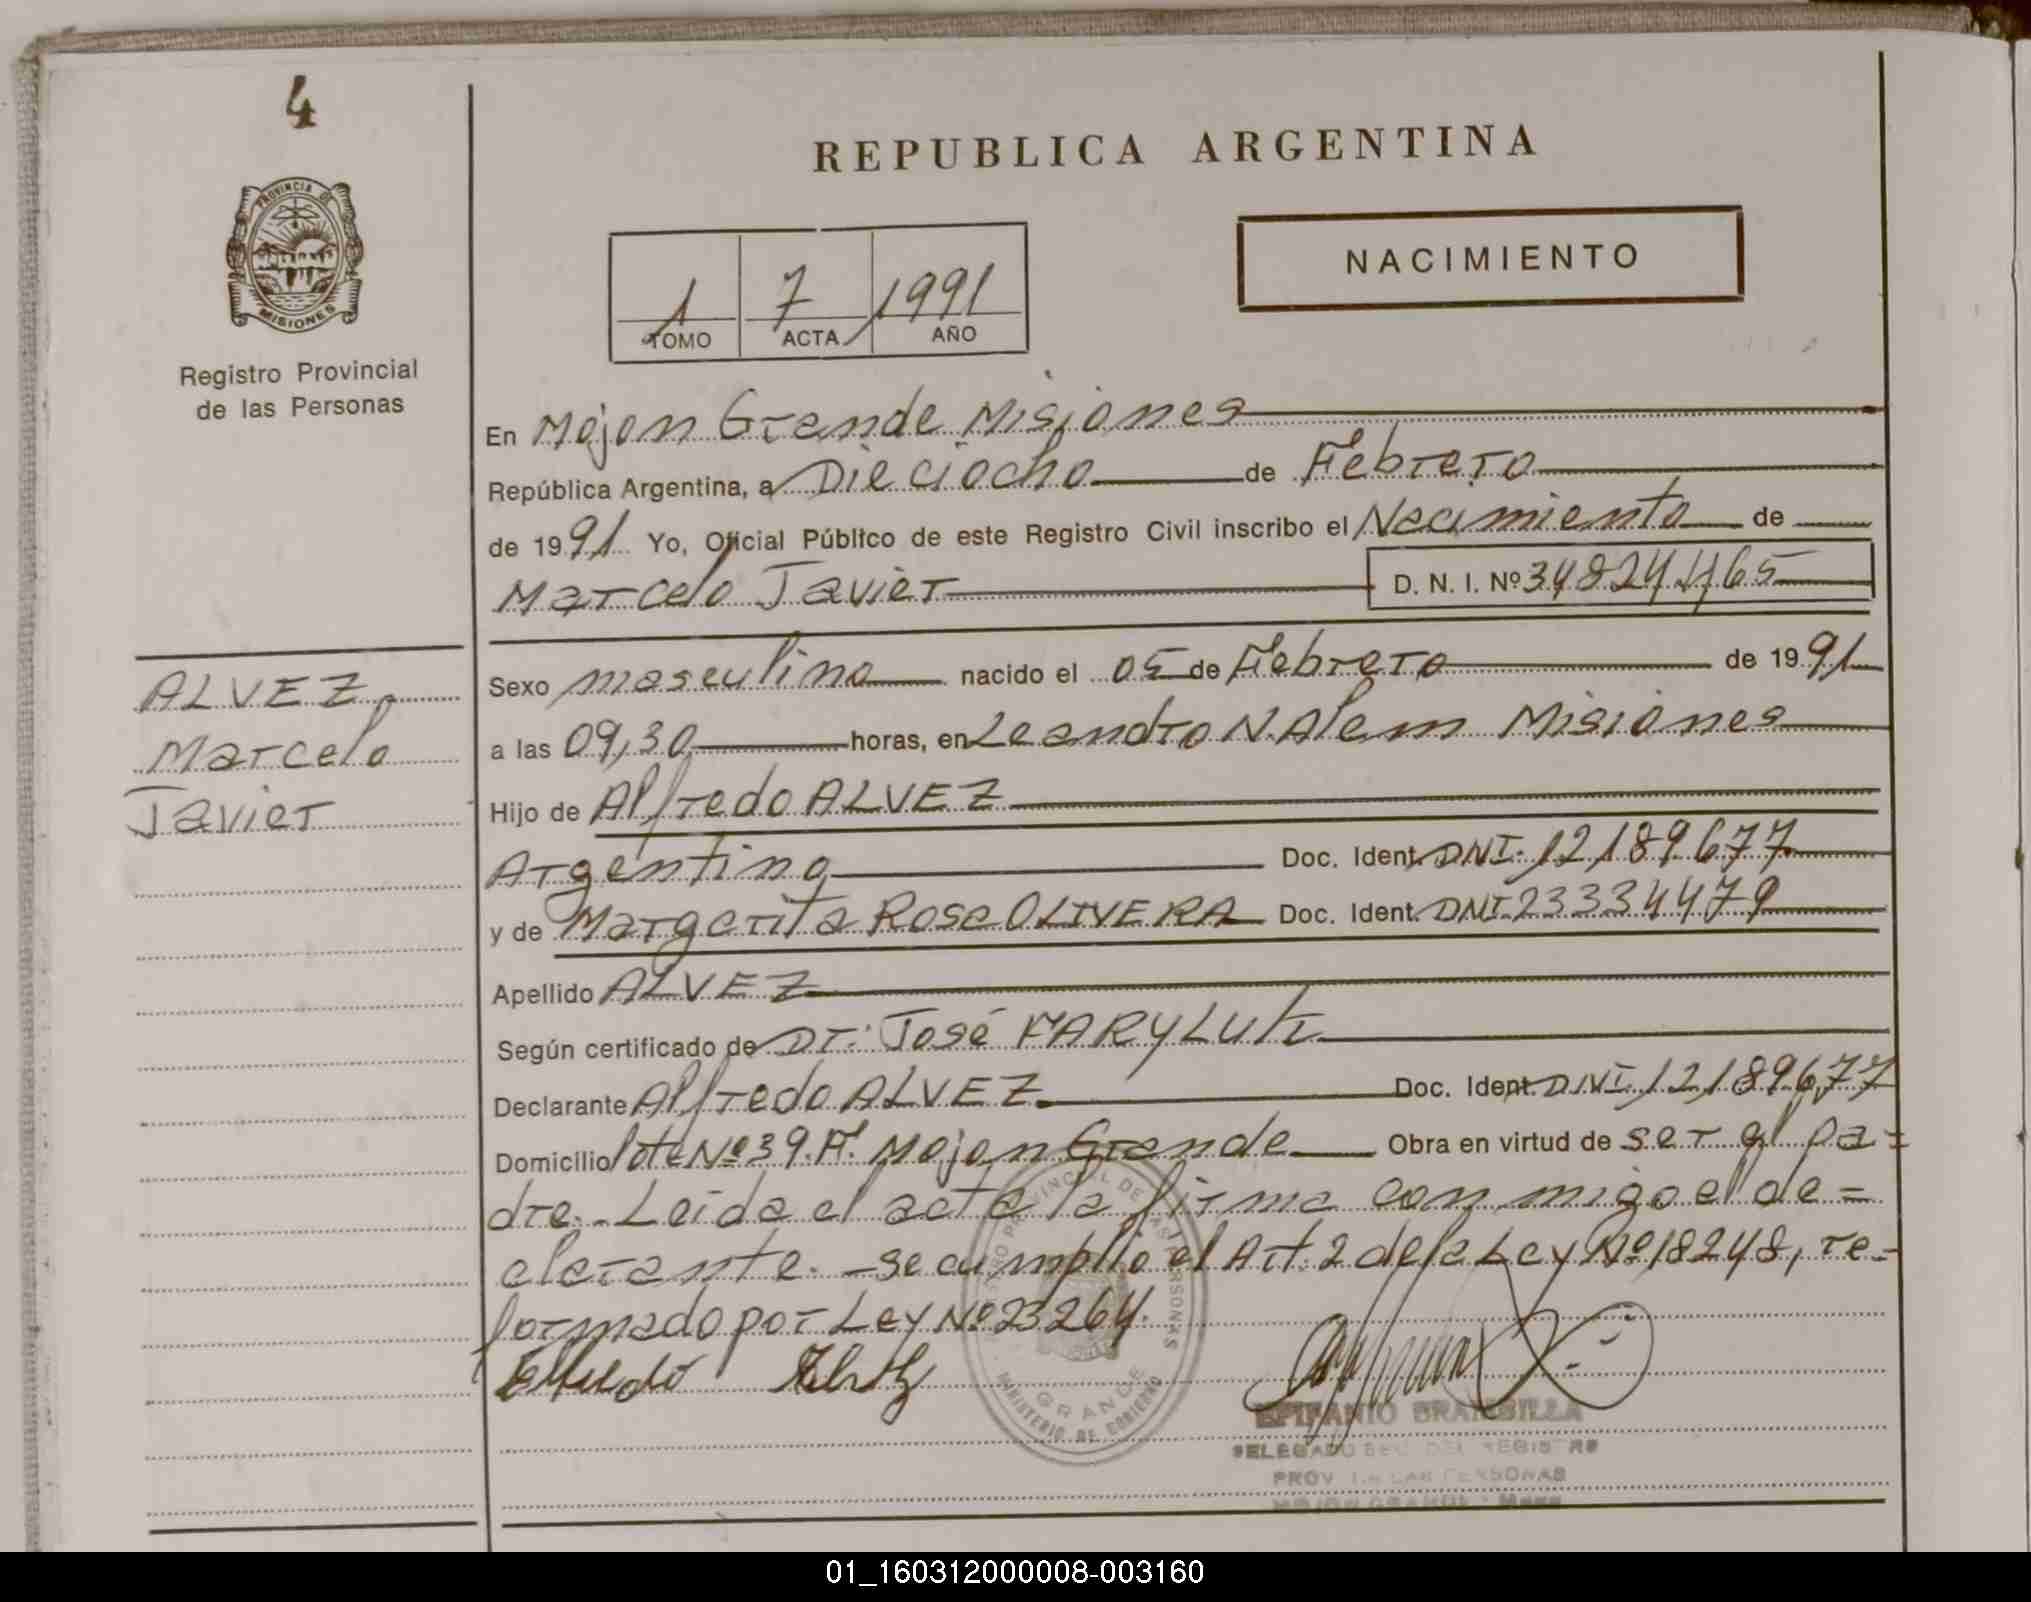 4
REPUBLICA ARGENTINA
PROVINCIA DE
MISIONES
Registro Provincial
de las Personas
NACIMIENTO
1 7 1991
TOMO ACTA AÑO
En Mojon Grande Misiones
República Argentina, a Dieciocho de Febrero
de 1991 Yo, Oficial Público de este Registro Civil inscribo el Nacimiento de
Marcelo Javier D. N. I. Nº 34824465
ALVEZ
Marcelo
Javier
Sexo masculino nacido el 05 de Febrero de 1991
a las 09,30 horas, en Leandro N. Alem Misiones
Hijo de Alfredo ALVEZ
Argentino Doc. Ident. DNI. 12189677
y de Margarita Rosa OLIVERA Doc. Ident. DNI 23334479
Apellido ALVEZ
Según certificado de Dr: José
Declarante Alfredo ALVEZ Doc. Ident. DNI 12189677
Domicilio lote Nº 39. F. Mojon Grande Obra en virtud de ser el pa=
dre. - Leida el acta la firma conmigo el de=
clarante. - se cumplio el Art. 2 de la Ley Nº 18248, re-
formado por Ley Nº 23264.
PROVINCIAL DE LAS PERSONAS
GRANDE
MINISTERIO DE GOBIERNO
EPIFANIO BRAMBILLA
DELEGADO DEL REGISTRO
PROV. DE LAS PERSONAS
MOJON GRANDE - Mnes
01_160312000008-003160